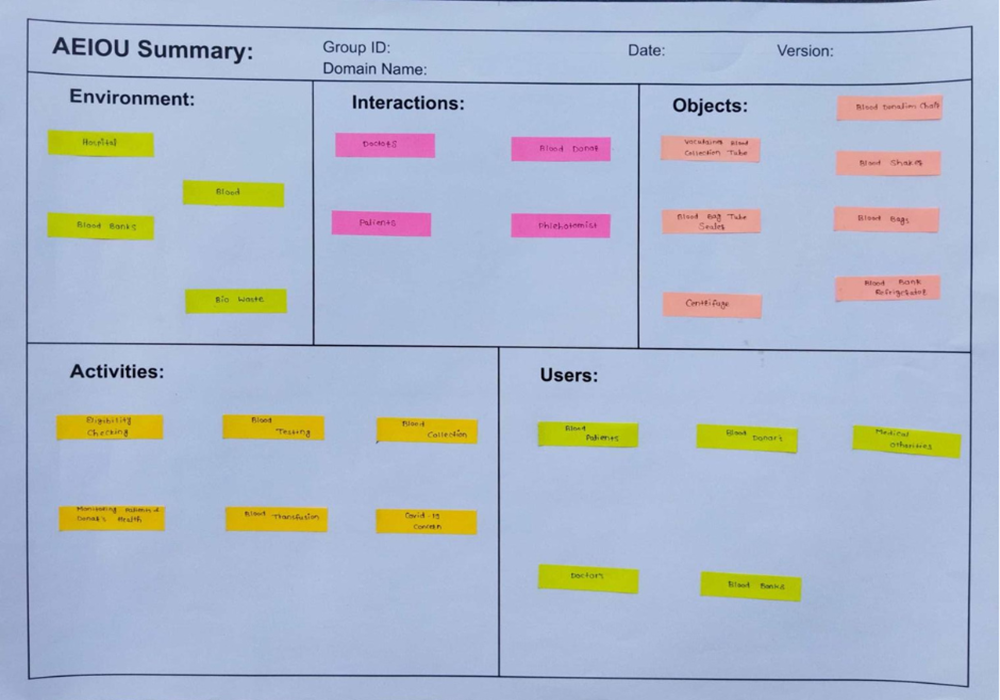 AEIOU Summary:
Group ID:
Domain Name:
Date:
Version:
Environment:
Hospital
Blood
Blood Banks
Bio Waste
Interactions:
Doctors
Blood Donor
Patients
Phlebotomist
Objects:
Blood Donation Chair
Blood
Collection Tube
Blood Shaker
Blood Bag Tube
Sealer
Blood Bags
Blood Bank
Refrigerator
Centrifuge
Activities:
Eligibility
Checking
Blood
Testing
Blood
Collection
Monitoring
Donor's Health
Blood Transfusion
Covid-19
Concern
Users:
Blood
Patients
Blood Donor's
Medical
Doctors
Blood Banks